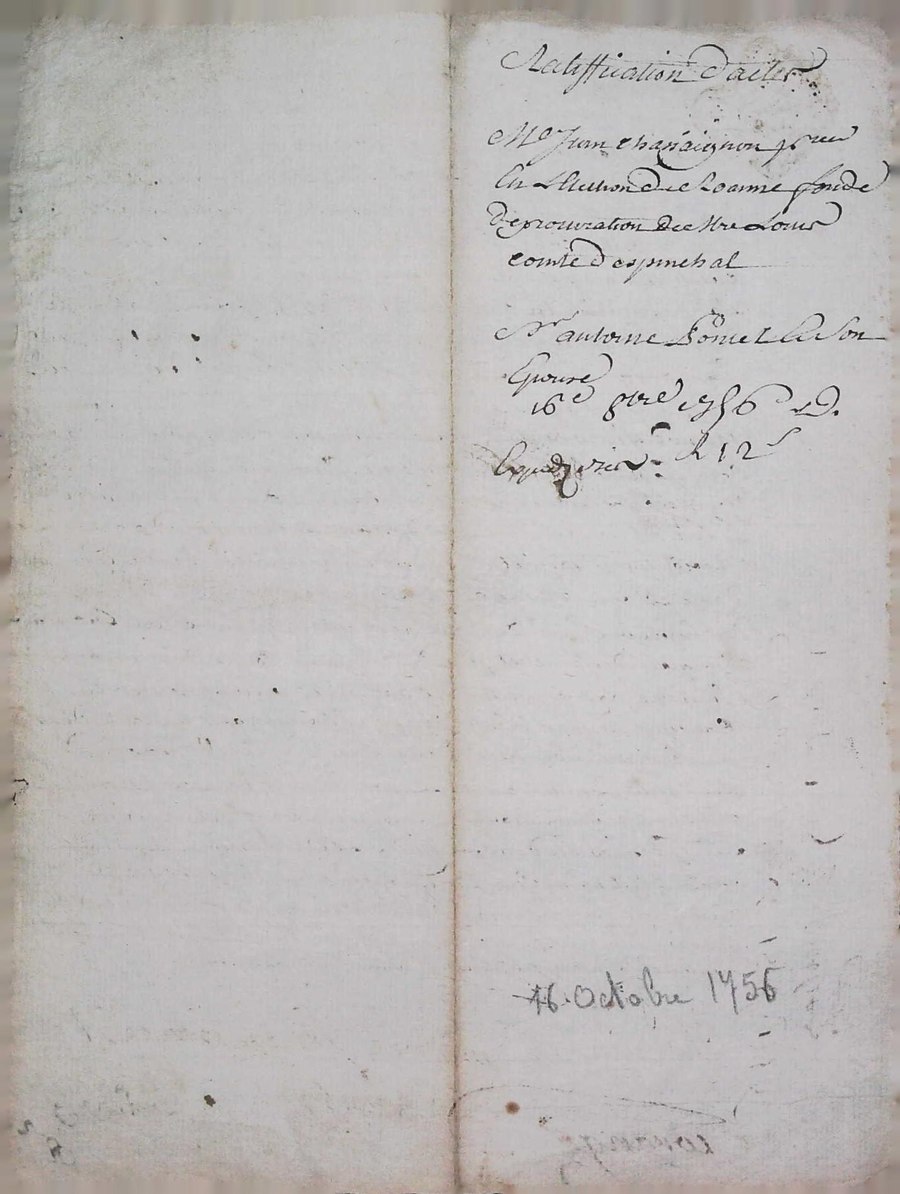 Ratiffication d'actes
Me Jean
En L'Election de Roanne fondé
de procuration de Mre Louis
comte d'espinchal
Sr antoine Poncet Et Son
Epouse
16e 8bre 1756
R 12s
16 Octobre 1756